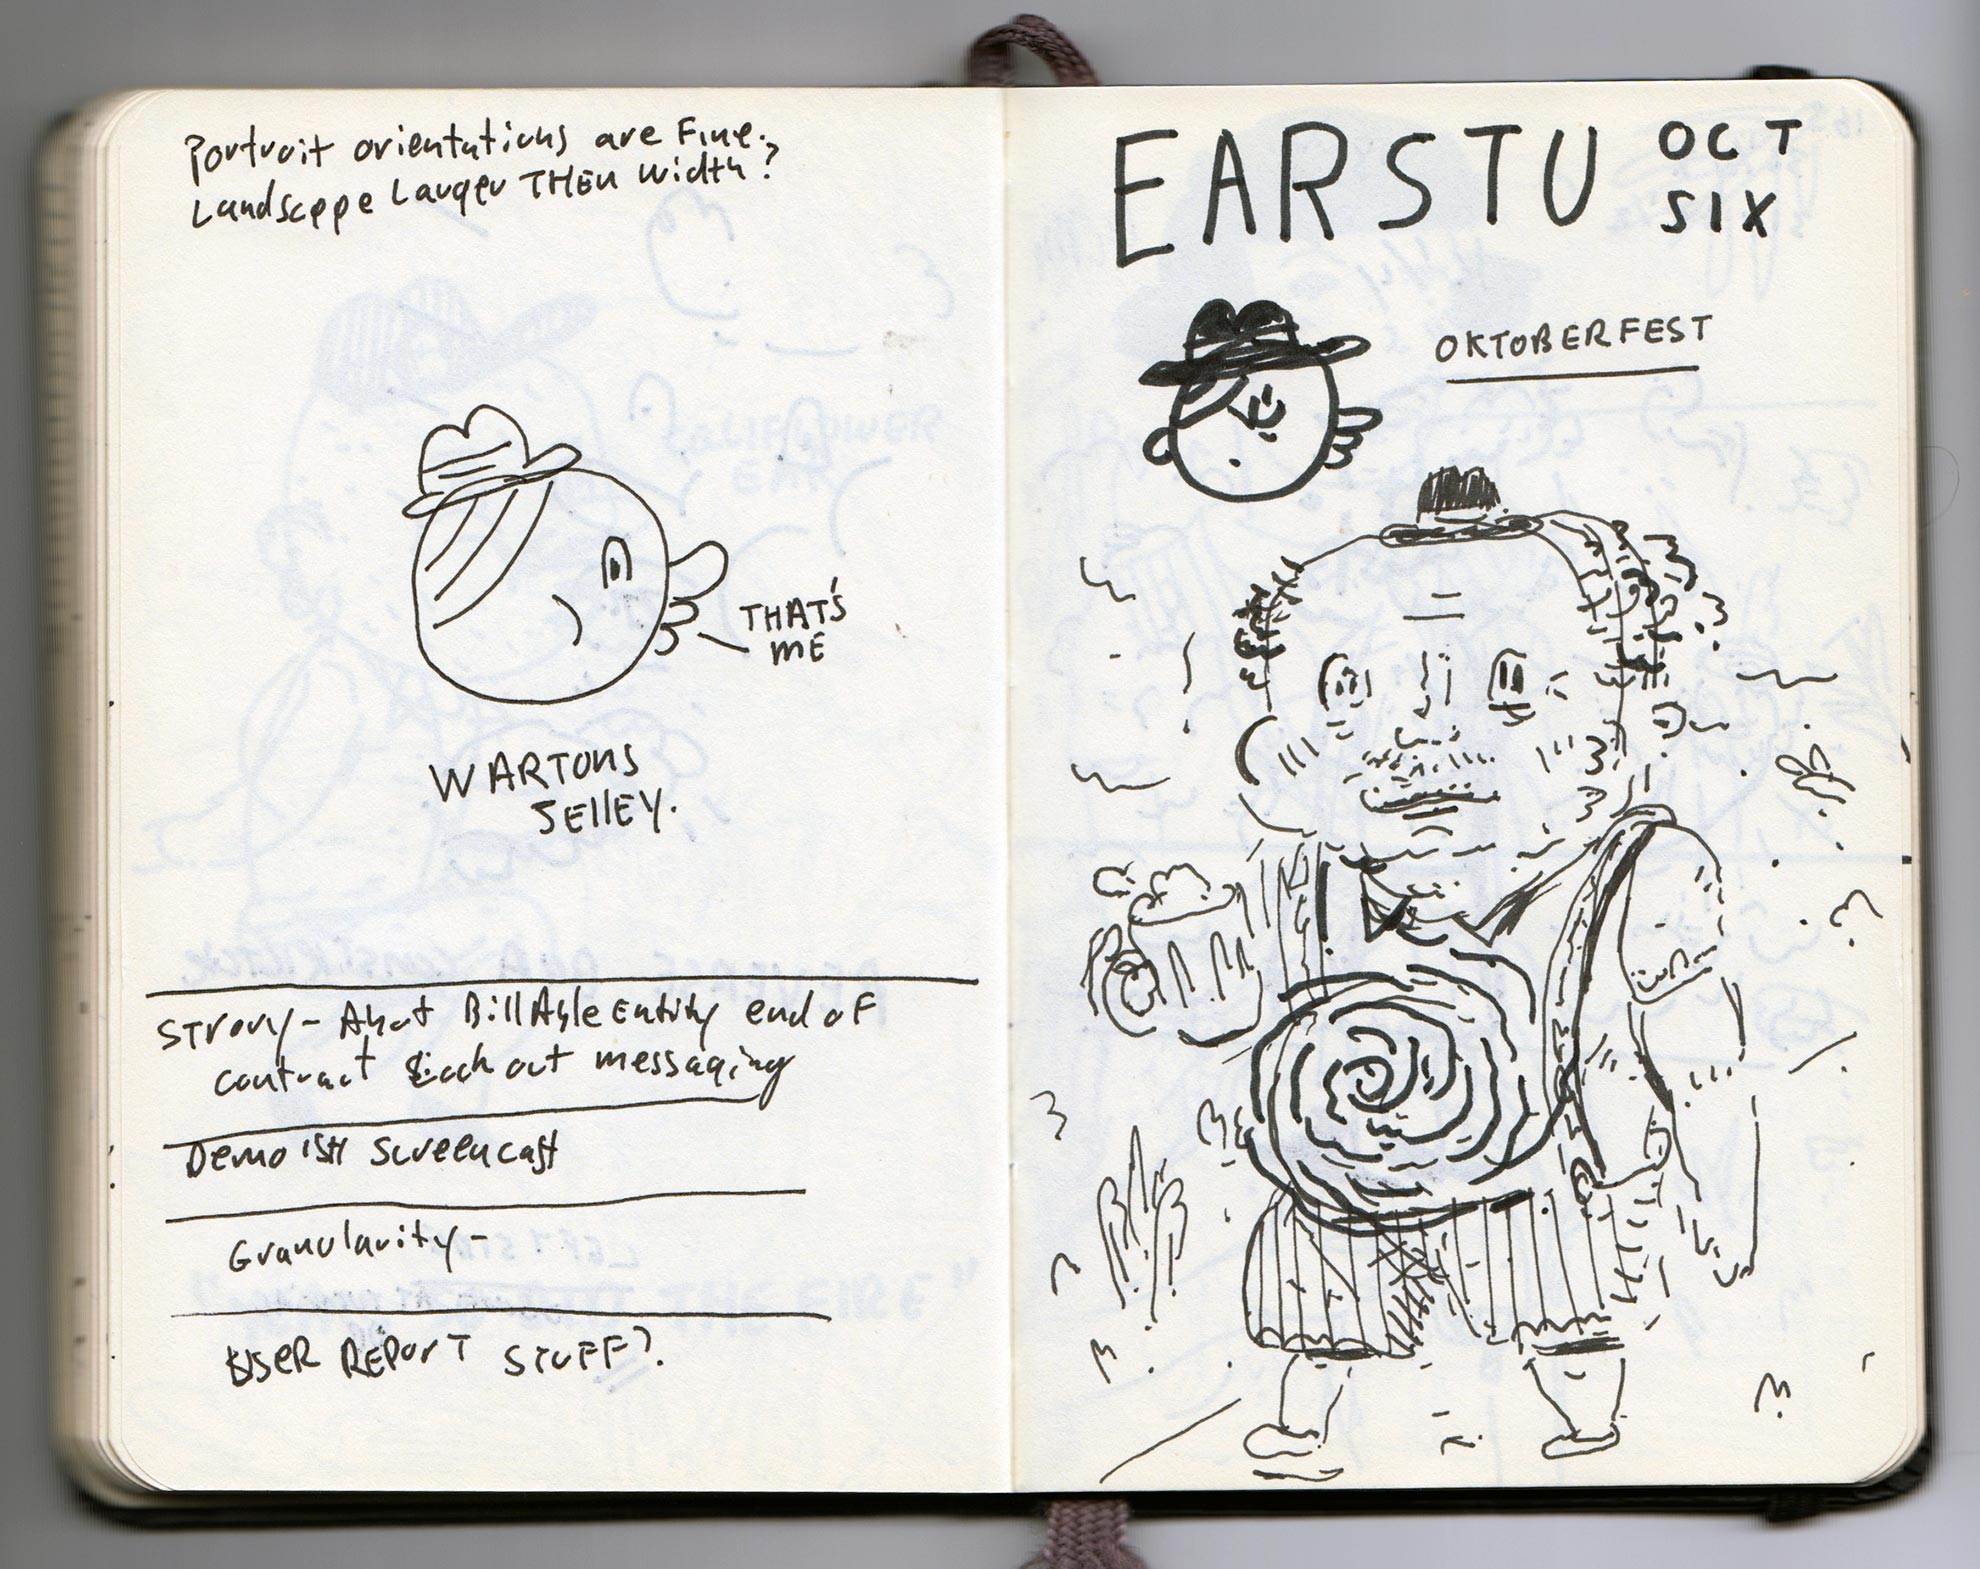 Portrait orientations are Fine.
Landscape Larger THEN width?
THAT'S
ME
WARTONS
SELLEY.
Strong - About BillAble Entity end of
contract lock out messaging
Demo ish screencast
Granularity -
USER REPORT STUFF?
EARSTU
OCT
SIX
OKTOBERFEST